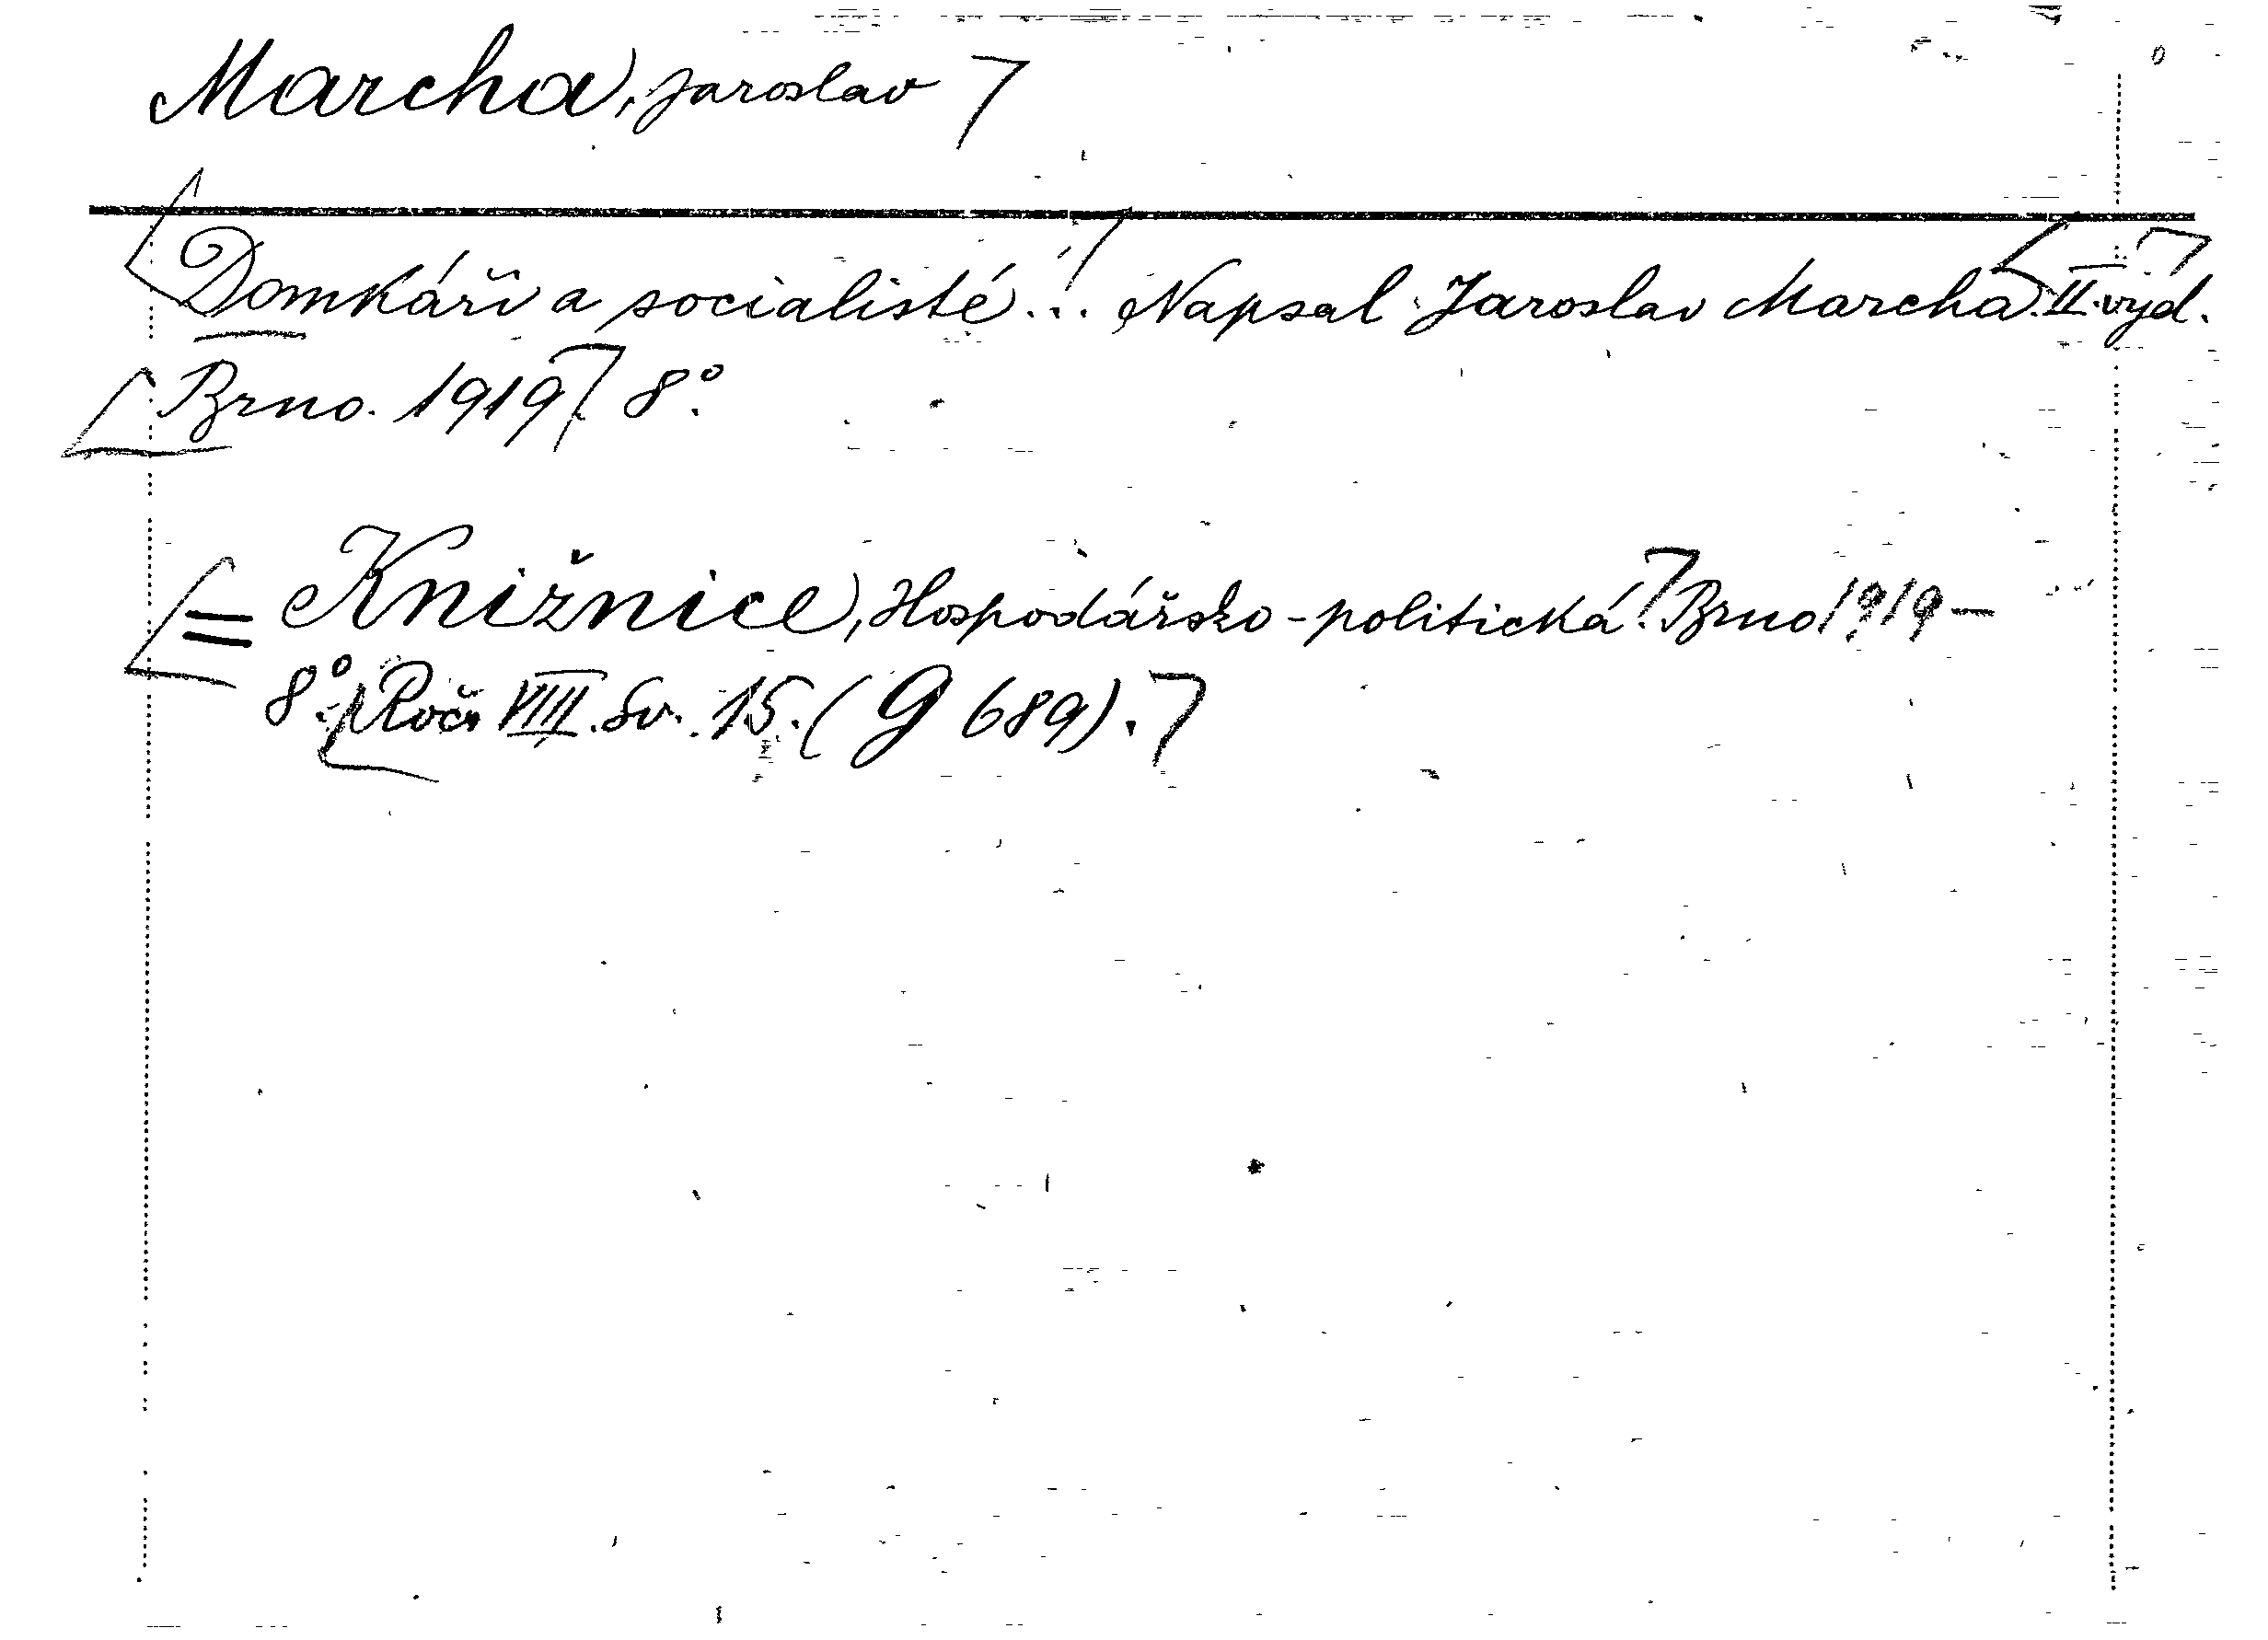 Marcha, Jaroslav
Domkáři a socialisté... Napsal Jaroslav Marcha. II. vyd.
Brno. 1919. 8°.
= Knižnice, Hospodářsko-politická. Brno 1919 -
8°. Roč. VIII. Sv. 15. (g 689).